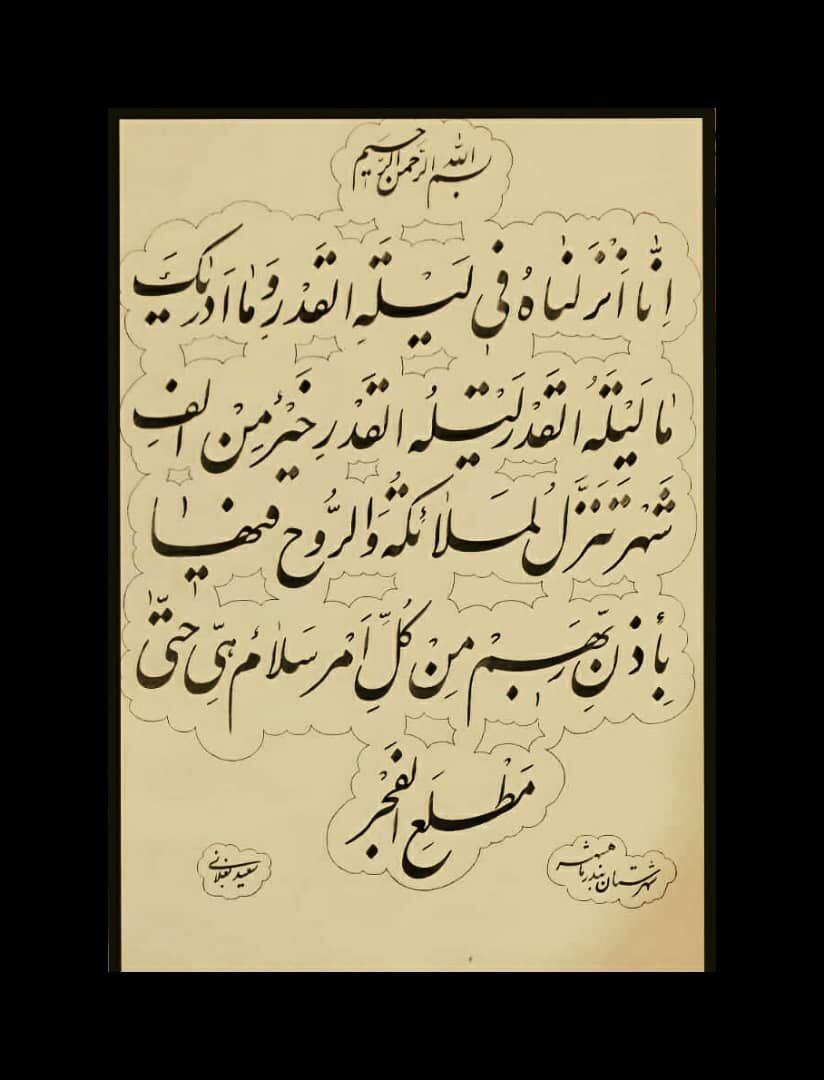 بسم الله الرحمن الرحیم
اِنّا اَنْزَلناهُ فی لَیْلَهِ القَدْرِ وَمٰا اَدْرٰیٰکَ
مٰا لَیْلَهُ القَدْرِ لَیْلَهُ القَدْرِ خَیْرٌ مِنْ اَلفِ
شَهْرٍ تَنَزَّلُ المَلائِکَهُ وَالرُّوحُ فیهٰا
بِأذنِ رَبِّهِم مِنْ کُلِّ اَمْرٍ سَلامٌ هِیَ حَتّیٰ
مَطْلَعِ الفَجْرِ
شهرستان بندر ماهشهر
سعید